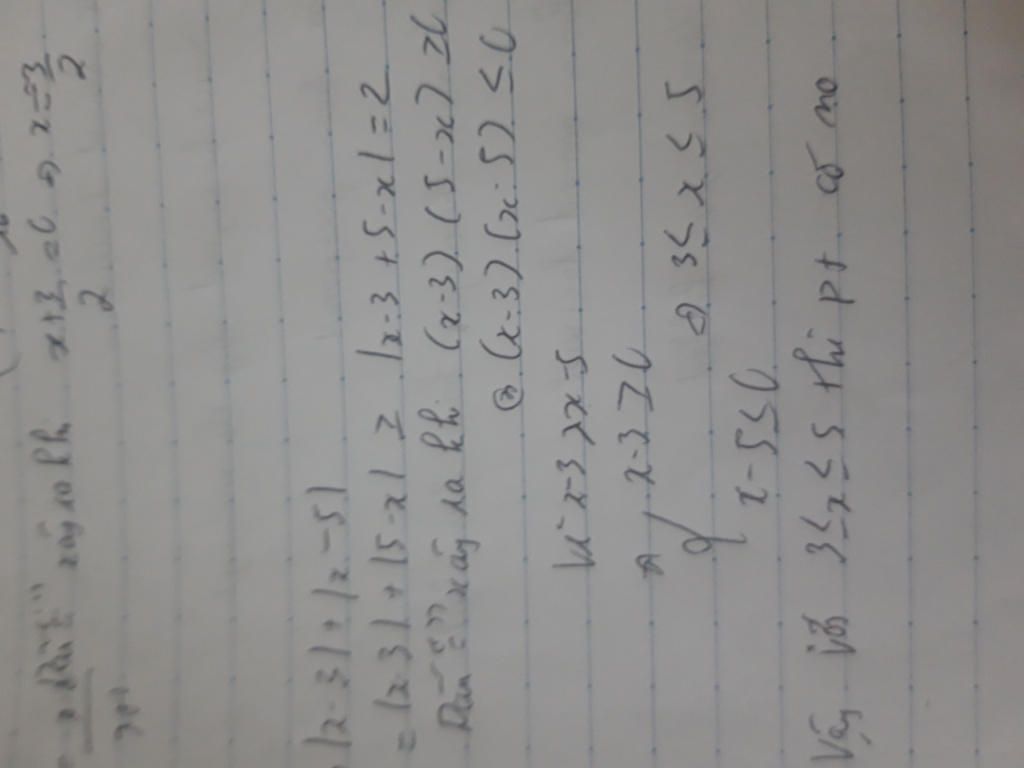 Dấu "=" xảy ra khi x+3/2=0 => x=-3/2
|x-3|+|x-5|
= |x-3|+|5-x| ≥ |x-3+5-x|=2
Dấu "=" xảy ra khi (x-3)(5-x) ≥0
⇔ (x-3)(x-5) ≤0
Vì x-3 > x-5
=> { x-3≥0
⇔ 3≤x≤5
x-5≤0
Vậy với 3≤x≤5 thì pt có no